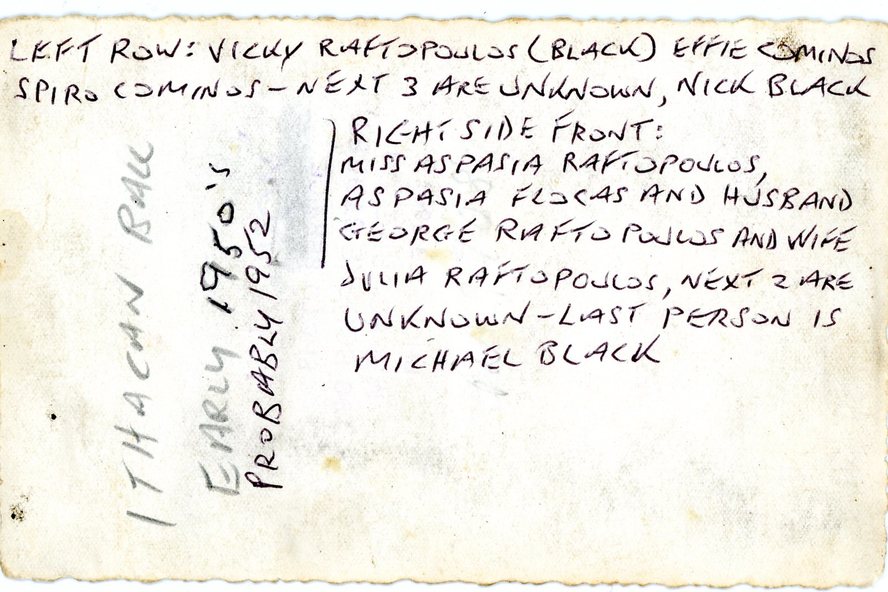 LEFT ROW: VICKY RAFTOPOULOS (BLACK) EFFIE COMINOS
SPIRO COMINOS - NEXT 3 ARE UNKNOWN, NICK BLACK
RIGHT SIDE FRONT:
MISS ASPASIA RAFTOPOULOS,
ASPASIA FLOCAS AND HUSBAND
GEORGE RAFTOPOULOS AND WIFE
JULIA RAFTOPOULOS, NEXT 2 ARE
UNKNOWN - LAST PERSON IS
MICHAEL BLACK
ITHACAN BALL
EARLY 1950's
PROBABLY 1952